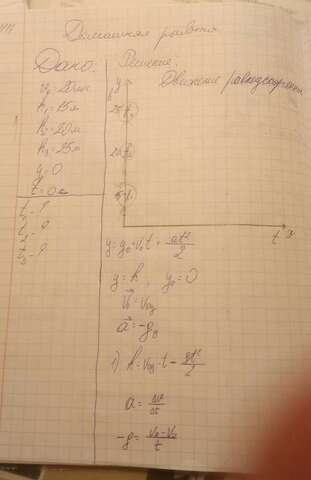 Домашняя работа
Дано:
v₀ = 20 м/с
h₁ = 15 м
h₂ = 20 м
h₃ = 25 м
y = 0
t = 0 c
t₁ - ?
t₂ - ?
t₃ - ?
Решение.
Движение
y
25
20
15
t
x
y = y₀ + v₀t + at²/2
y = h, y₀ = 0
a⃗ = -g
1) h = v₀y·t - gt²/2
a = Δv/Δt
-g = (v₀ - v₀)/t